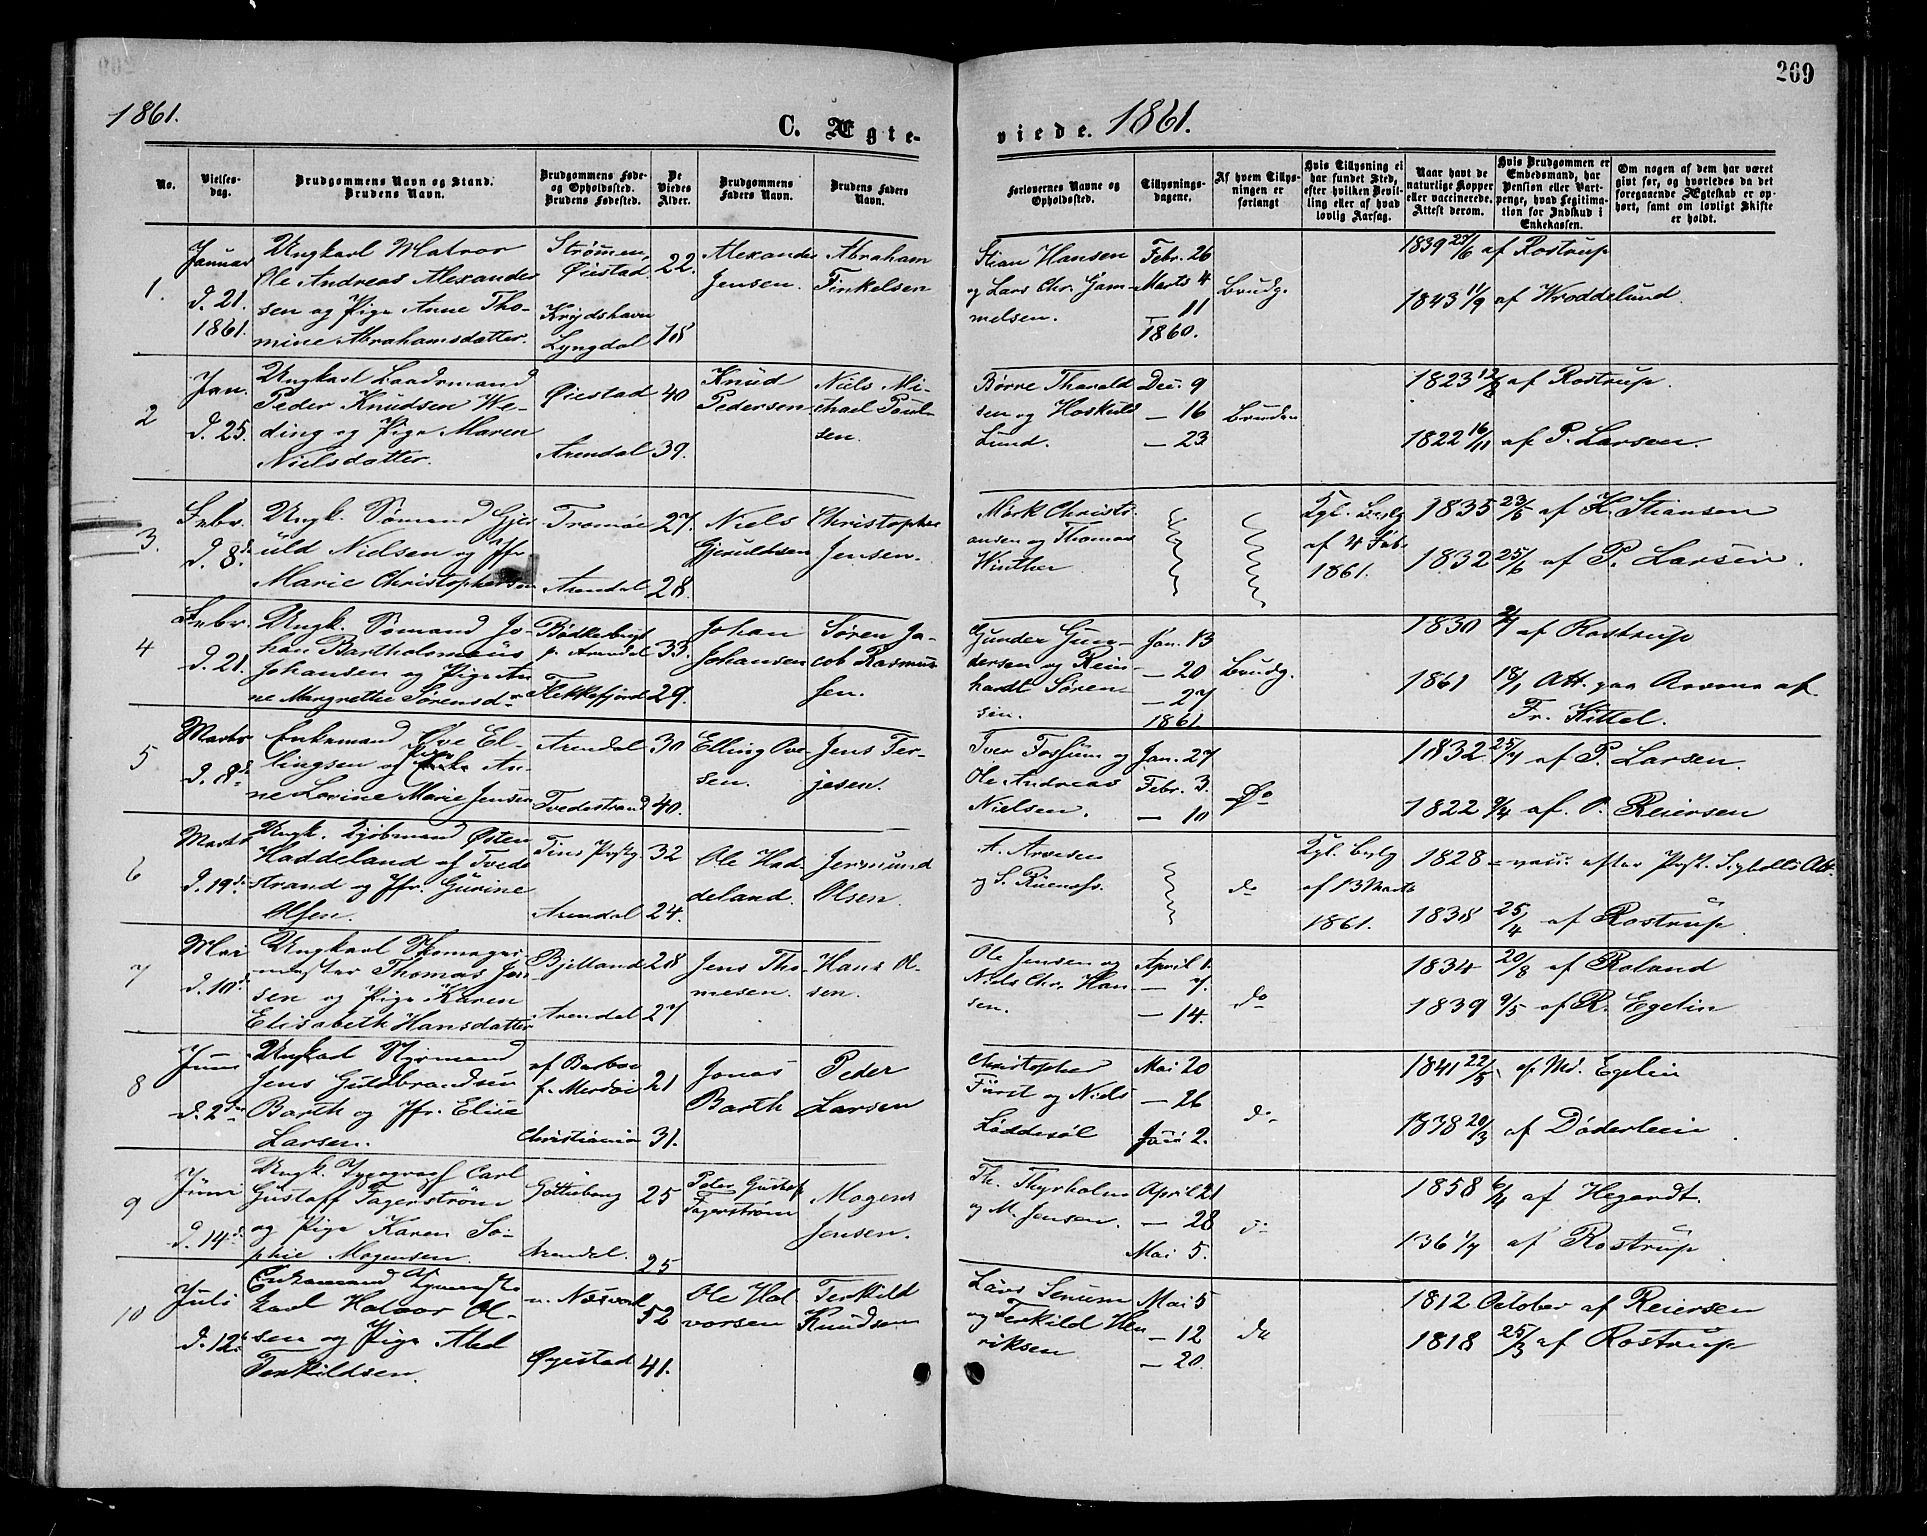 269
1861.
C. Ægte-
viede. 1861.
No.
Vielses-
dag.
Brudgommens Navn og Stand.
Brudens Navn.
Brudgommens Føde-
og Opholdssted.
Brudens Fødested.
De
Viedes
Alder.
Brudgommens
Faders Navn.
Brudens Faders
Navn.
Forlovernes Navne og
Opholdssted.
Tillysnings-
dagene.
Af hvem Tillys-
ningen er
forlangt
Hvis Tillysning ei
har fundet Sted,
efter hvilken Bevil-
ling eller af hvad
lovlig Aarsag.
Naar havt de
naturlige Kopper
eller vaccinerede.
Attest derom.
Hvis Brudgommen er
Embedsmand, har
Pension eller Vart-
penge, hvad Legitima-
tion for Indskud i
Enkekassen.
Om nogen af dem har været
gift før, og hvorledes da det
foregaaende Ægteskab er op-
hørt, samt om lovligt Skifte
er holdt.
1.
Januar
d. 21.
1861.
Ungkarl Matros
Ole Andreas Alexander
sen og Pige Anne Tho-
mine Abrahamsdatter.
Strømen,
Øiestad.
Krydshavn
Lyngdal
22.
18
Alexander
Jensen.
Abraham
Finkelsen
Stian Hansen
og Lars Chr. Gam-
melsen.
Febr. 26
Marts 4
— 11
1860.
Brudg.
1839 23/6 af Rostrup
1843 11/9 af Wroddelund.
2
Jan.
d. 25.
Ungkarl Baadsmand
Peder Knudsen We-
ding og Pige Maren
Nielsdatter.
Øiestad
Arendal
40
39.
Knud
Pedersen
Niels Mi-
chael Poul-
sen.
Børre Tharald
sen og Hoskuld
Lund.
Dec. 9
— 16
— 23
Bruden
1823 12/8 af Rostrup.
1822 16/11 af P. Larsen.
3.
Febr.
d. 8de
Ungk. Sømand Gjer
uld Nielsen og Jfr.
Marie Christophersen
Tromøe
Arendal
27.
28.
Niels
Gjeruldsen
Christopher
Jensen.
Mørk Christi-
ansen og Thomas
Winther
Kgl. Bevlg
af 4 Feb.
1861.
1835 23/6 af K. Stiansen
1832 25/6 af P. Larsen.
4
Febr.
d. 21.
Ungk. Sømand Jo-
han Bartholomæus
Johansen og Pige An
ne Margrethe Sørensdr
Bødkerbugt
p. Arendal
Flekkefjord
33.
29.
Johan
Johansen
Søren Ja-
cob Rasmus
sen.
Gunder Gun-
dersen og Rein-
hardt Søren-
sen.
Jan. 13
— 20
— 27
1861
Brudg.
1830 2/7 af Rostrup
1861 18/1 Att. paa Aarena af
Fr. Kittel.
5
Marts
d. 8de
Enkemand Ove El-
lingsen og Pige An-
ne Lovine Marie Jensen
Arendal
Tvedestrand
30
40.
Elling Ove-
sen.
Jens Ter-
jesen.
Iver Fossum og
Ole Andreas
Nielsen.
Jan. 27
Febr. 3.
— 10
Do
1832 25/7 af P. Larsen.
1822 9/4 af O. Reiersen
6
Marts
d. 19de
Ungk. Kjøbmand Østen
Haddeland af Tvede
strand og Jfr. Gurine
Olsen.
Tins Prstg.
Arendal
32
24.
Ole Had-
deland.
Jermund
Olsen.
A. Arnesen
og S. Ruenæss.
do
Kgl. bevlg
af 13 Marts
1861.
1828
1838 25/4 af Rostrup.
7
Mai
d. 10de
Ungkarl Skomager
mester Thomas Jen
sen og Pige Karen
Elisabeth Hansdatter
Bjelland
Arendal
28
27
Jens Tho-
mesen.
Hans Ol-
sen.
Ole Jensen og
Niels Chr. Han
sen.
April 1.
— 7.
— 14.
do
1834 20/8 af Roland
1839 9/5 af R. Egelin
8
Juni
d. 2den
Ungkarl Styrmand
Jens Guldbrandsen
Barth og Jfr. Elise
Larsen.
af Barboe
f. Merdøi
Christiania
21
31.
Jonas
Barth
Peder
Larsen
Christopher
Fürst og Niels
Løddesøl
Mai 20
— 26
Juni 2.
do
1841 22/5 af Md. Egelin
1838 20/3 af Døderlein
9
Juni
d. 14de
Ungk. Typograf Carl
Gustaff Fagerstrøm
og Pige Karen So-
phie Mogensen
Gøtteborg
Arendal.
25
25
Peter Gustaf
Fagerstrøm
Mogens
Jensen.
Th. Thyrholm
og M. Jensen.
April 21
— 28
Mai 5.
do
1858 6/4 af Hegardt.
136 1/7 af Rostrup.
10
Juli
d. 12te
Enkemand
karl Halvor Ol-
sen og Pige Abel
Terkildsen.
Øyestad
52
41.
Ole Hal
vorsen
Terkild
Knudsen
Lars Senum
og Terkild Hen
riksen
Mai 5
— 12
— 20.
do
1812 October af Reiersen
1818 25/3 af Rostrup